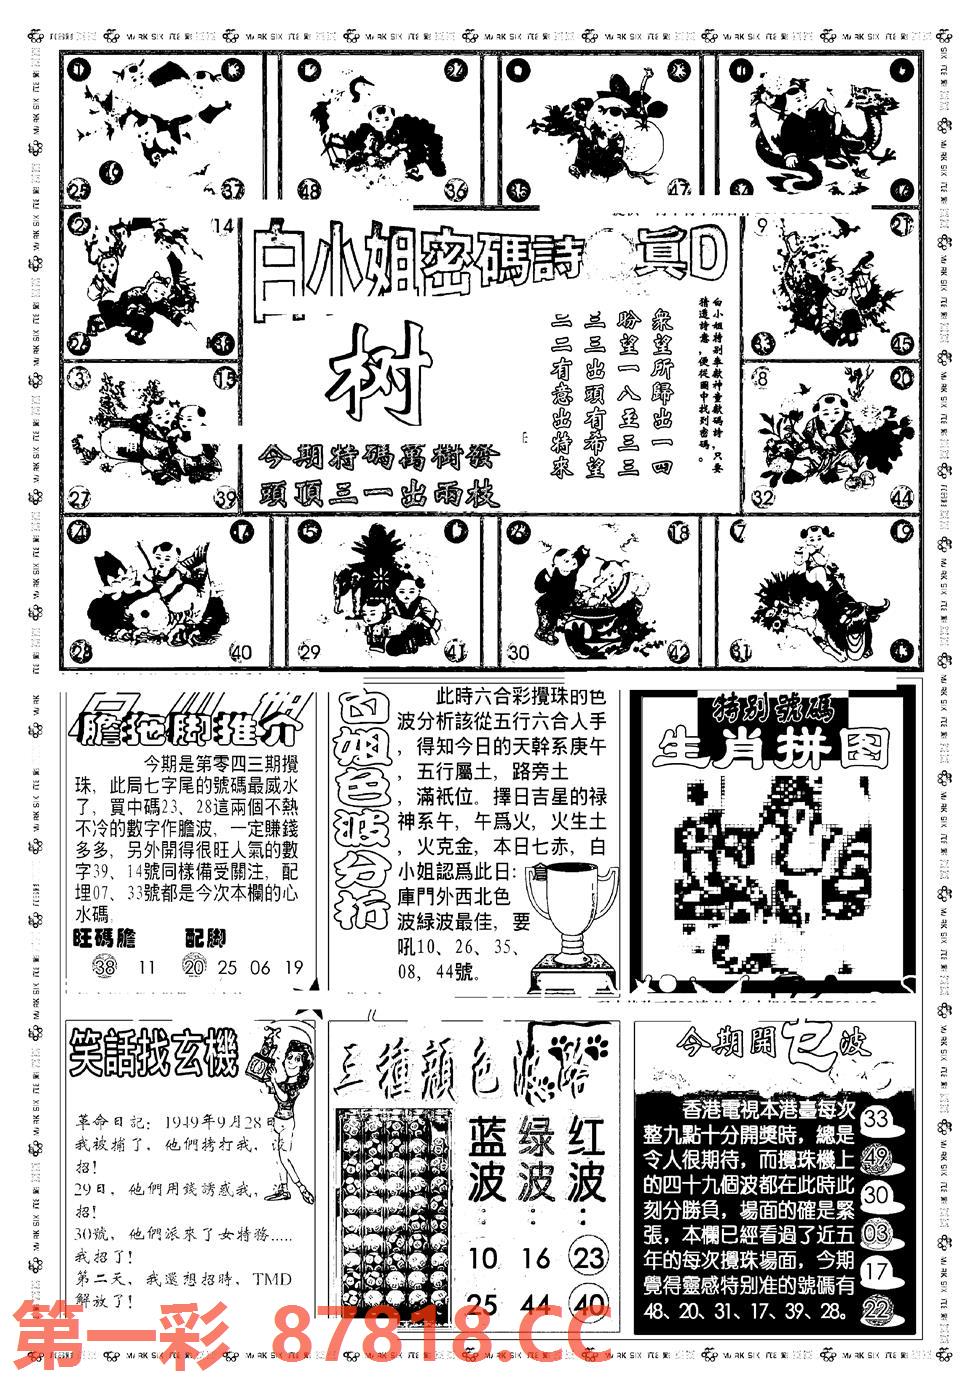 白小姐密碼詩 真D
树
今期特碼萬樹發
頭頂三一出兩枝
白小姐特别奉獻神童獻碼詩，只要
猜透詩意，便從圖中找到密碼。
衆望所歸出一四
盼望一八至三三
三三出頭有希望
二二有意出特來
25 37
48 36
35 47
2 14
26 38
9 21
33 45
3 15
27 39
8 20
32 44
28 40
5
29 41
18
30 42
7 19
31
膽拖脚推介
今期是第零四三期攪
珠，此局七字尾的號碼最威水
了，買中碼23、28這兩個不熱
不冷的數字作膽波，一定賺錢
多多，另外開得很旺人氣的數
字39、14號同樣備受關注，配
埋07、33號都是今次本欄的心
水碼，
旺碼膽 配脚
38 11 20 25 06 19
白姐色波分析
此時六合彩攪珠的色
波分析該從五行六合人手
，得知今日的天幹系庚午
，五行屬土，路旁土
，滿衹位。擇日吉星的禄
神系午，午爲火，火生土
，火克金，本日七赤，白
小姐認爲此日：倉
庫門外西北色
波綠波最佳，要
吼10、26、35、
08，44號。
特别號碼
生肖拼图
笑話找玄機
革命日記：1949年9月28日
我被捕了，他們拷打我，没
招！
29日，他們用錢誘惑我，没
招！
30號，他們派來了女特務.....
我招了！
第二天，我還想招時，TMD
解放了！
三種顔色
蓝波：
绿波：
红波：
10 16 23
25 44 40
今期開 波
香港電視本港臺每次
整九點十分開獎時，總是
令人很期待，而攪珠機上
的四十九個波都在此時此
刻分勝負，場面的確是緊
張，本欄已經看過了近五
年的每次攪珠場面，今期
覺得靈感特别准的號碼有
48、20、31、17、39、28。
33
49
30
03
17
22
第一彩 87818.CC